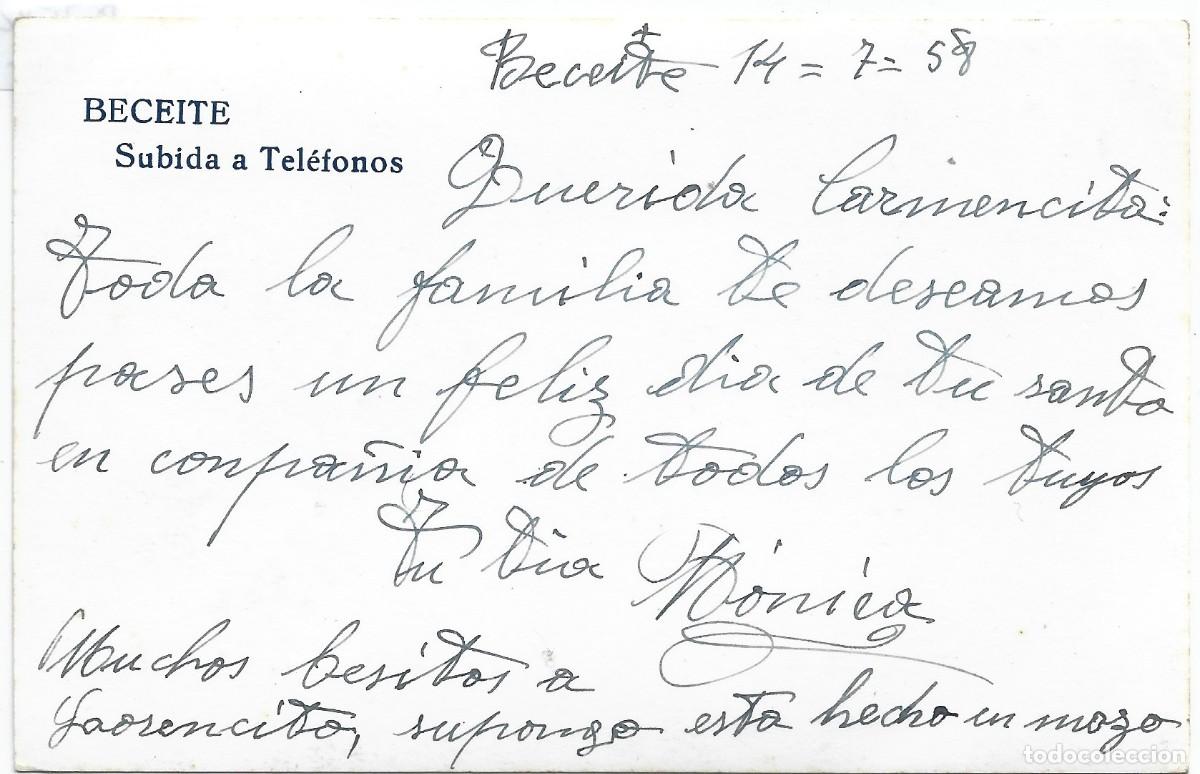 Beceite 14=7=58
BECEITE
Subida a Teléfonos
Querida Carmencita:
Toda la familia te deseamos
pases un feliz dia de tu santo
en conpañia de todos los tuyos
Tu tia Mónica
Muchos besitos a
Laorencito, supongo está hecho un mozo
todocoleccion